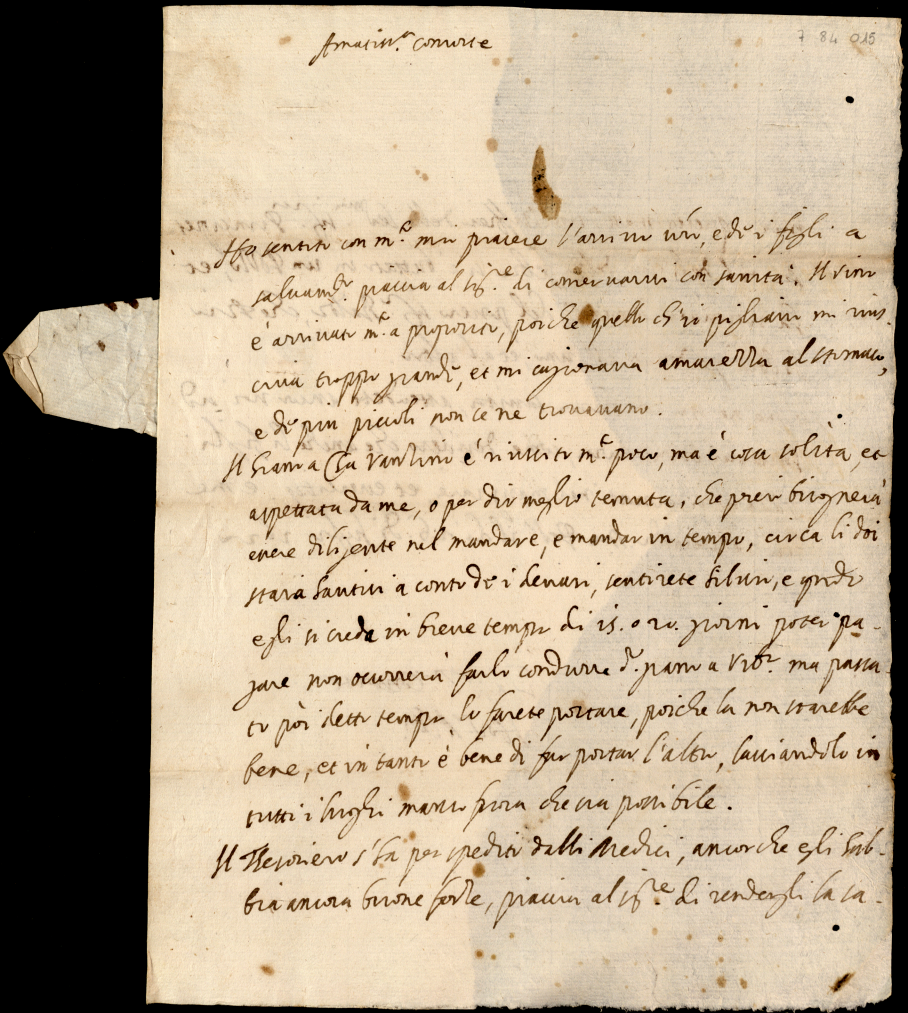 7 84 015
Amatiss.a consorte
Ho sentito con m.o mio piacere l'arrivo vro, e de i figli a
salvam.to piaccia al Sig.re di conservarvi con sanità. Il vino
è arrivato m.o a proposito, poiche quello ch'io pigliavo mi rius-
civa troppo grande, et mi cagionava amarezza al stomaco,
e de più piccoli non ce ne trovavano.
Il grano a Ca Vanzino è riuscito m.o poco, ma è cosa solita, et
aspettata da me, o per dir meglio temuta, che però bisognerà
essere diligente nel mandare, e mandar in tempo, circa li doi
stara Santini a conto de i denari, sentirete Silvio, e q.do
egli si creda in breve tempo di 15. o 20. giorni poter pa-
gare non occorrerà farlo condurre d.o grano a Vit.o ma passa-
to poi detto tempo lo farete portare, poiche la non starebbe
bene, et in tanto è bene di far portar l'altro, lasciandolo in
tutti i luoghi manco fuora che sia possibile.
Il Thesoriero s'ha per spedito dalli Medici, ancor che egli hab-
bia ancora buone forze, piaccia al Sig.re di rendergli la sa-